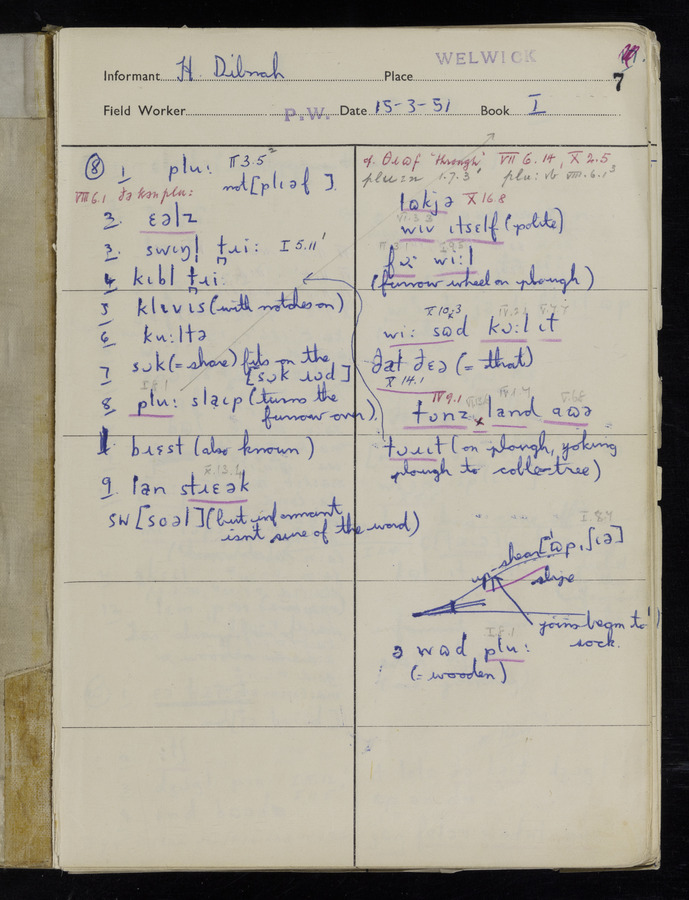 WELWICK
Informant H. Dibnah Place
7
Field Worker P.W. Date 15-3-51 Book I
⑧ 1 plu: II 3.5
not [plɪəf ].
VIII 6.1 tə kən plu:
2. ɛəlz
3. swɪŋl tɹi: I 5.11'
4 kɪbl tɹi:
5 klɛvɪs (with notches on)
6 ku:ltə
7 sʊk (= share) fits on the
[sʊk ɹʊd]
8 plu: slaɪp (turns the
furrow over).
bɹɛst (also known)
9. lan stɹɛək
SW [soəl] (but informant
isn't sure of the word)
cf. θɹəf 'through' VII 6.14, X 2.5
plu:z 1.7.3' plu: vb VIII.6.1
lɒkjə X 16.8
wɪv ɪtsɛlf (polite)
fɔ: wi:l
(furrow wheel on plough)
X 10.3
wi: sɒd kʊ:l ɪt
ðat ðɛə (= that)
X 14.1
IV 9.1
tʊnz land aʊə
tʊɹɪt (on plough, yoking
plough to cobble-tree)
X.13.1
I.8.4
up-shear [ɒp,ʃɪə]
slipe
joins beam to
sock.
ə wɒd plu:
(= wooden)